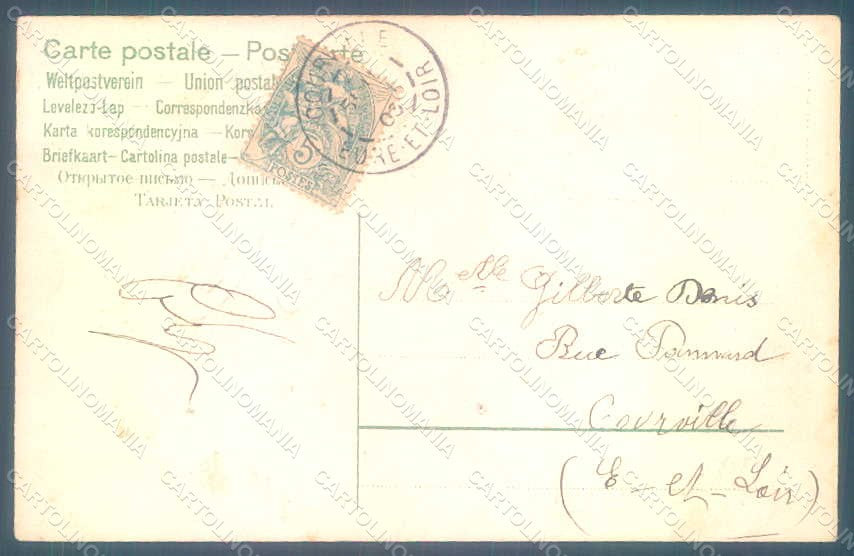 Carte postale – Postkarte
Weltpostverein — Union postale
Levelező-Lap — Correspondenzka
Karta korespondencyjna — Kore
Briefkaart — Cartolina postale —
Открытое письмо —
Tarjeta Postal
5
POSTES
COURVILLE
EURE-ET-LOIR
Melle Gilberte Denis
Rue
Courville
(E-et-Loir)
CARTOLINOMANIA